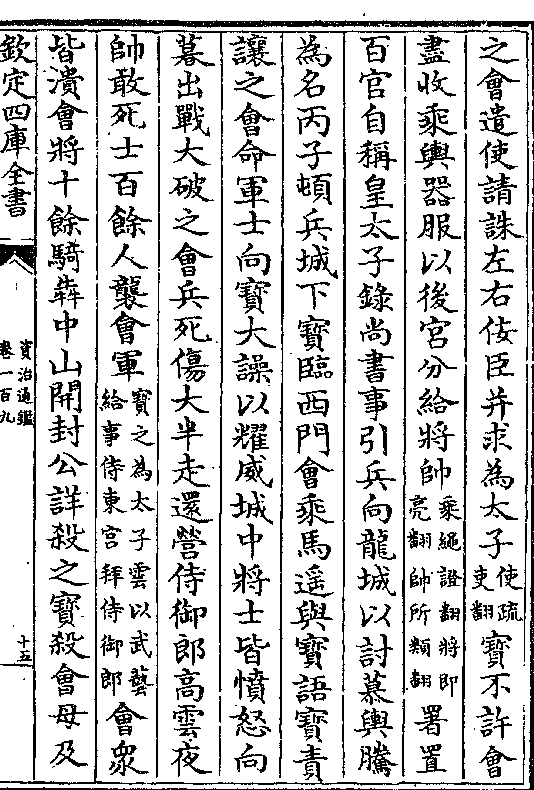 之會遣使請誅左右佞臣并求為太子使疏吏翻寶不許會
盡收乘輿器服以後宮分給將帥乘繩證翻將即亮翻帥所類翻署置
百官自稱皇太子錄尚書事引兵向龍城以討慕輿騰
為名丙子頓兵城下寶臨西門會乘馬遥與寶語寶責
讓之會命軍士向寶大譟以耀威城中將士皆憤怒向
暮出戰大破之會兵死傷大半走還營侍御郎高雲夜
帥敢死士百餘人襲會軍寶之為太子雲以武藝給事侍東宮拜侍御郎會衆
皆潰會將十餘騎犇中山開封公詳殺之寶殺會母及
欽定四庫全書
資治通鑑
卷一百九
十五